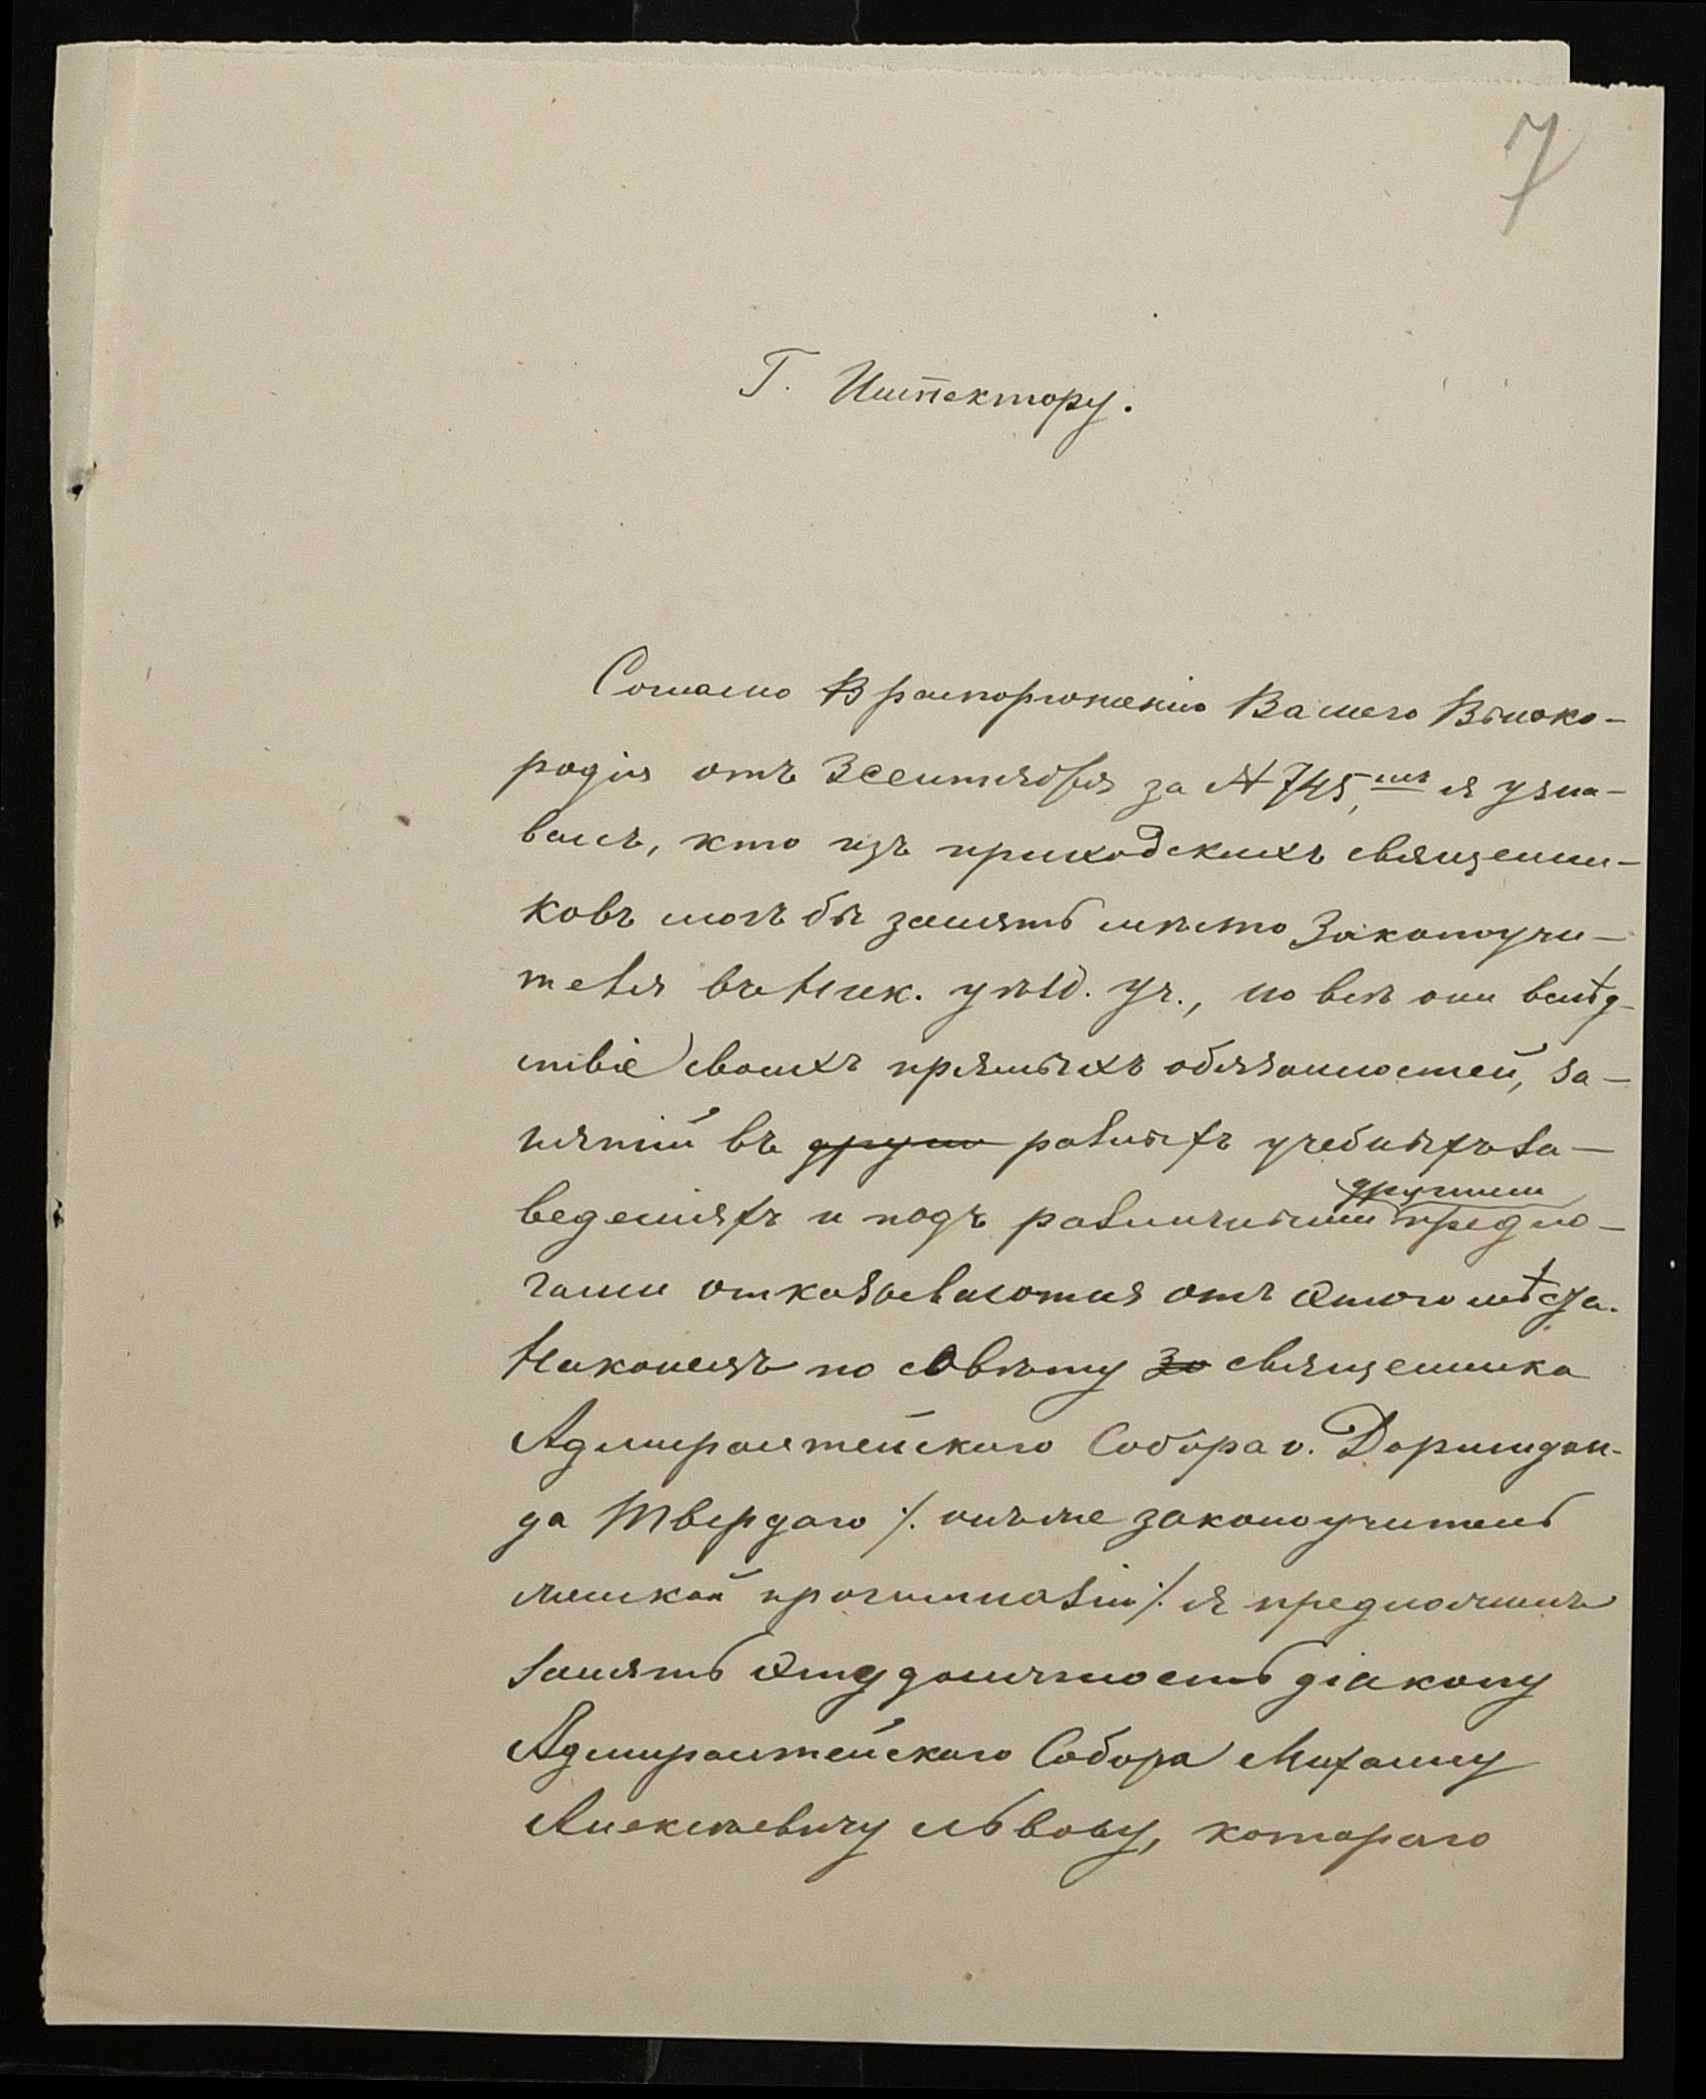 7
Г. Инспектору.
Согласно В распоряженію Вашего Высоко-
родія отъ 3 сентября за № 745, мъ я узна-
валъ, кто изъ приходскихъ священни-
ковъ могъ бы занять мѣсто Законоучи-
теля въ Ник. уѣзд. уч., но всѣ они вслѣд-
ствіе своихъ прямыхъ обязанностей, за-
нятій въ друго разныхъ учебныхъ за-
веденіяхъ и подъ различными другими предло-
гами отказываются отъ этого мѣста.
Наконецъ по совѣту За священника
Адмиралтейскаго Собора о. Доримедон-
да Твердаго /. онъ же законоучитель
женской прогимназіи /. я предложилъ
занять эту должность діакону
Адмиралтейскаго Собора Михаилу
Алексѣевичу Львову, котораго